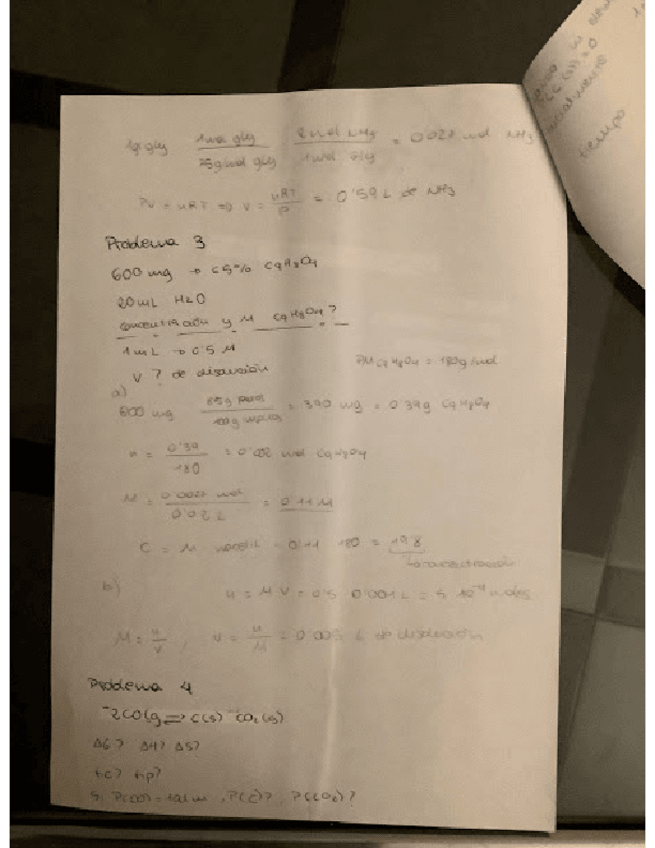 1g gly 1mol gly / 75g/mol gly 2mol NH3 / 1mol gly = 0'027 mol NH3
PV = nRT => V = nRT / P = 0'59 L de NH3
Problema 3
600 mg → 65% C9H8O4
20 mL H2O
concentración y M C9H8O4?
1 mL → 0'5 M
V? de disolución
PM C9H8O4 = 180g/mol
a)
600 mg 65g / 100g = 390 mg = 0'39g C9H8O4
n = 0'39 / 180 = 0'002 mol C9H8O4
M = mol / 0'02 L = 0'11 M
C = M = 0'11 180 = 19'8
concentración
b)
n = M V = 0'5 0'001 L = 5 10⁻⁴ moles
M = n / V, V = n / M = L de disolución
Problema 4
2CO(g) ⇌ C(s) CO2(g)
ΔG? ΔH? ΔS?
Kc? Kp?
Si P(CO) = 1atm P(C)? P(CO2)?
tiempo